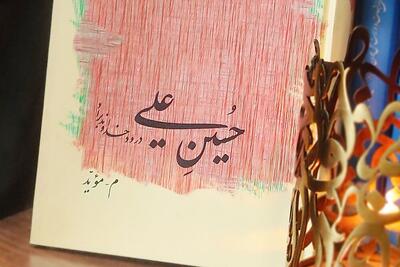 حُسینِ علی
درود خداوند بر او
م. مؤیّد